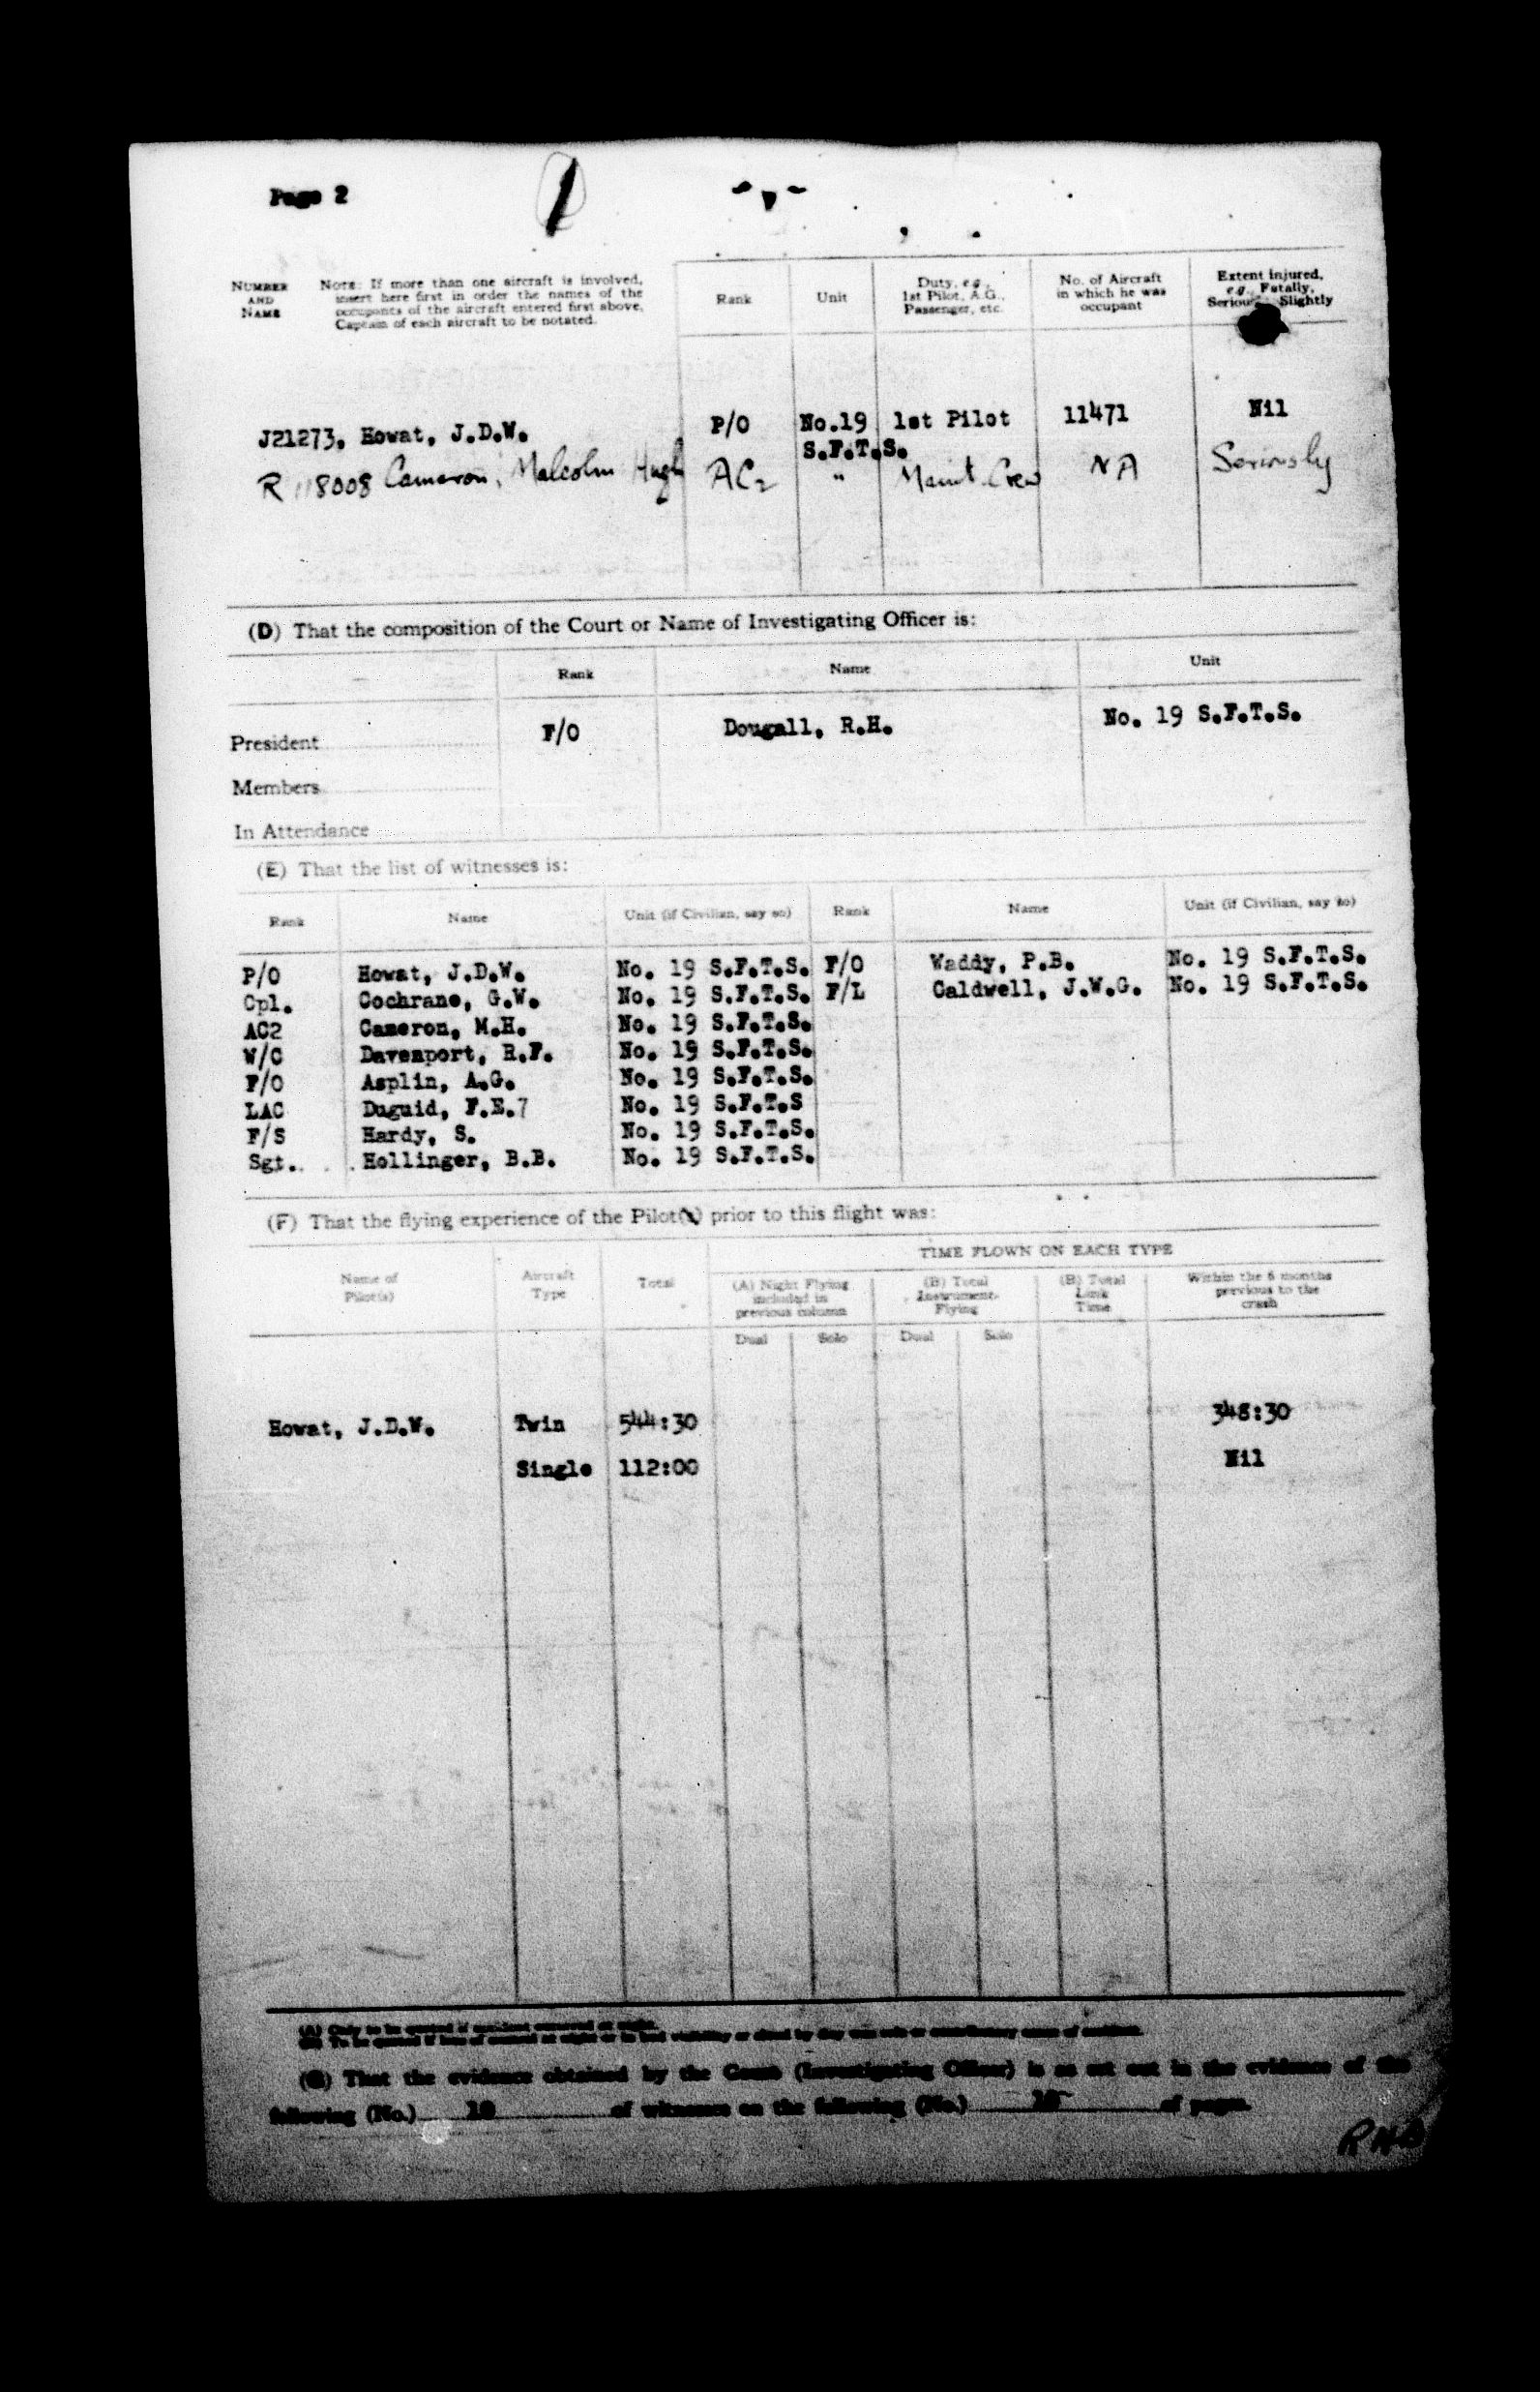 Page 2
1
NUMBER AND NAME
Note: If more than one aircraft is involved, insert here first in order the names of the occupants of the aircraft entered first above, Captain of each aircraft to be notated.
Rank
Unit
Duty, e.g., 1st Pilot, A.G., Passenger, etc.
No. of Aircraft in which he was occupant
Extent injured, e.g., Fatally, Serious Slightly
J21273, Howat, J.D.W. P/O No.19 S.F.T.S. 1st Pilot 11471 Nil
R 118008 Cameron, Malcolm Hugh AC2 " Maint. Crew NA Seriously
(D) That the composition of the Court or Name of Investigating Officer is:
Rank Name Unit
President F/O Dougall, R.H. No. 19 S.F.T.S.
Members
In Attendance
(E) That the list of witnesses is:
Rank Name Unit (if Civilian, say so) Rank Name Unit (if Civilian, say so)
P/O Howat, J.D.W. No. 19 S.F.T.S. F/O Waddy, P.B. No. 19 S.F.T.S.
Cpl. Cochrane, G.W. No. 19 S.F.T.S. F/L Caldwell, J.W.G. No. 19 S.F.T.S.
AC2 Cameron, M.H. No. 19 S.F.T.S.
W/C Davenport, R.F. No. 19 S.F.T.S.
F/O Asplin, A.G. No. 19 S.F.T.S.
LAC Duguid, F.E.7 No. 19 S.F.T.S
F/S Hardy, S. No. 19 S.F.T.S.
Sgt. Hollinger, B.B. No. 19 S.F.T.S.
(F) That the flying experience of the Pilot(s) prior to this flight was:
TIME FLOWN ON EACH TYPE
Name of Pilot(s)
Aircraft Type
Total
(A) Night Flying included in previous column
(B) Total Instrument Flying
(B) Total Link Time
Within the 6 months previous to the crash
Dual Solo Dual Solo
Howat, J.D.W. Twin 544:30 348:30
Single 112:00 Nil
(A) Only to be quoted if accident occurred at night.
(B) To be quoted if loss of control at night or in bad visibility or cloud by day was sole or contributory cause of accident.
(G) That the evidence obtained by the Court (Investigating Officer) is as set out in the evidence of the
following (No.) 10 of witnesses on the following (No.) of pages.
RHD